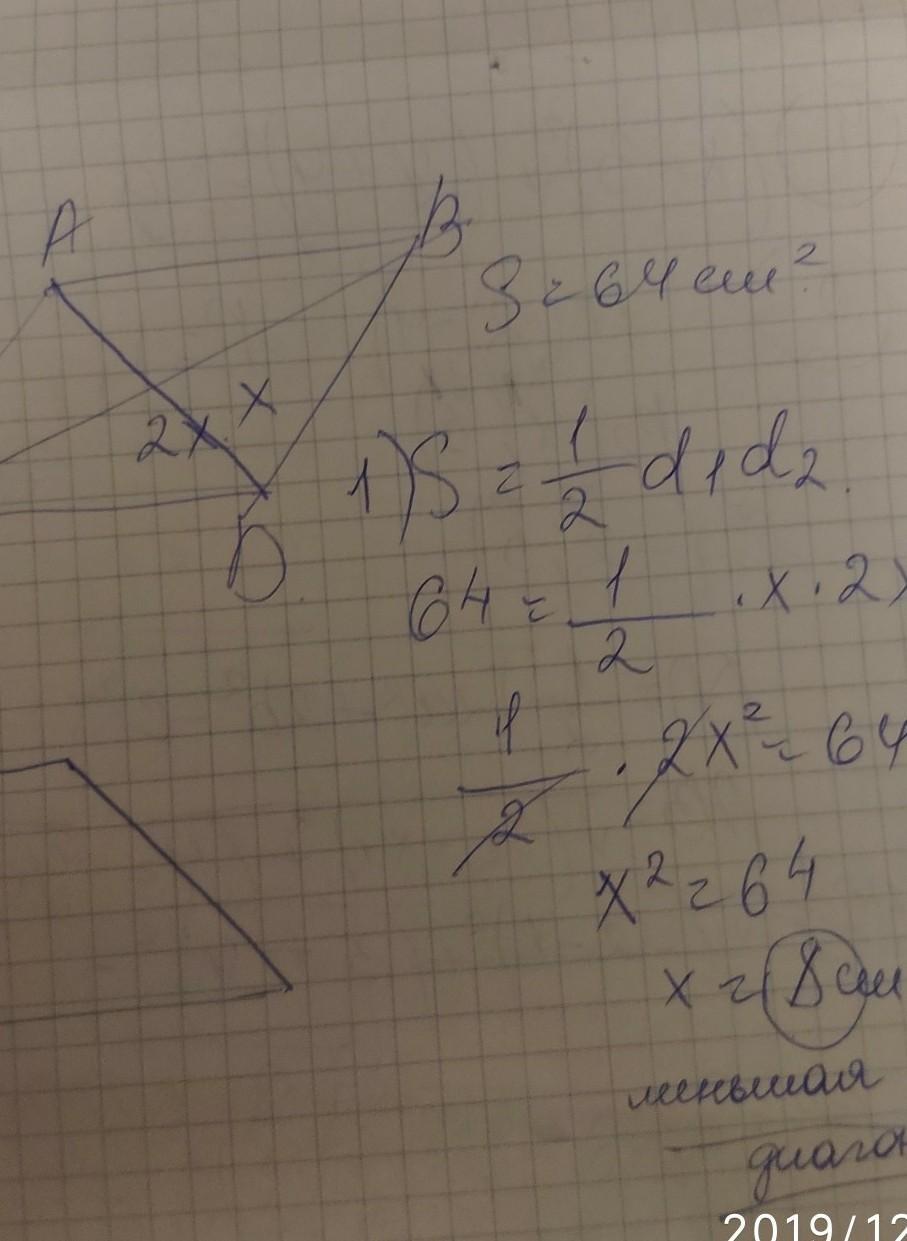 A
B
S = 64 см²
2x x
1) S = 1/2 d1d2
D
64 = 1/2 · x · 2x
1/2 · 2x² = 64
x² = 64
x = 8 см
меньшая
диаго
2019/12